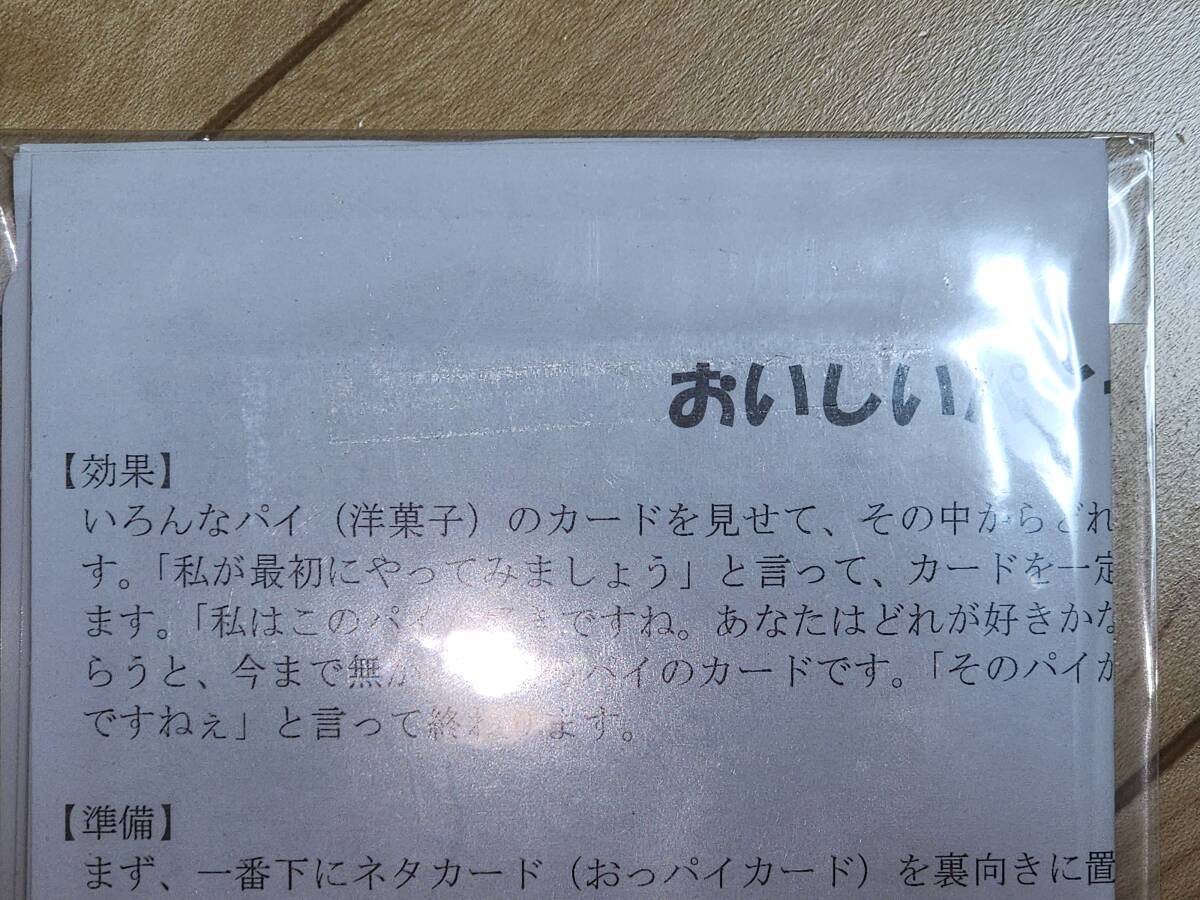 おいしい
【効果】
いろんなパイ（洋菓子）のカードを見せて、その中からどれ
す。「私が最初にやってみましょう」と言って、カードを一定
ます。「私はこのパイ きですね。あなたはどれが好きかな
らうと、今まで無か のパイのカードです。「そのパイが
ですねぇ」と言って終わります。
【準備】
まず、一番下にネタカード（おっパイカード）を裏向きに置